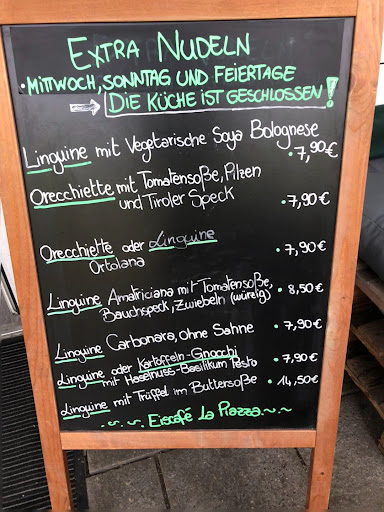 EXTRA NUDELN
• MITTWOCH, SONNTAG UND FEIERTAGE
→ DIE KÜCHE IST GESCHLOSSEN!
Linguine mit Vegetarische Soya Bolognese
• 7,90€
Orecchiette mit Tomatensoße, Pilzen
und Tiroler Speck • 7,90€
Orecchiette oder Linguine • 7,90€
Ortolana
Linguine Amatriciana mit Tomatensoße, • 8,50€
Bauchspeck, Zwiebeln (würzig)
Linguine Carbonara, ohne Sahne • 7,90€
Linguine oder Kartoffeln-Gnocchi • 7,90€
mit Haselnuss-Basilikum Pesto
Linguine mit Trüffel im Buttersoße • 14,50€
~ ~ ~ Eiscafé La Piazza ~ ~